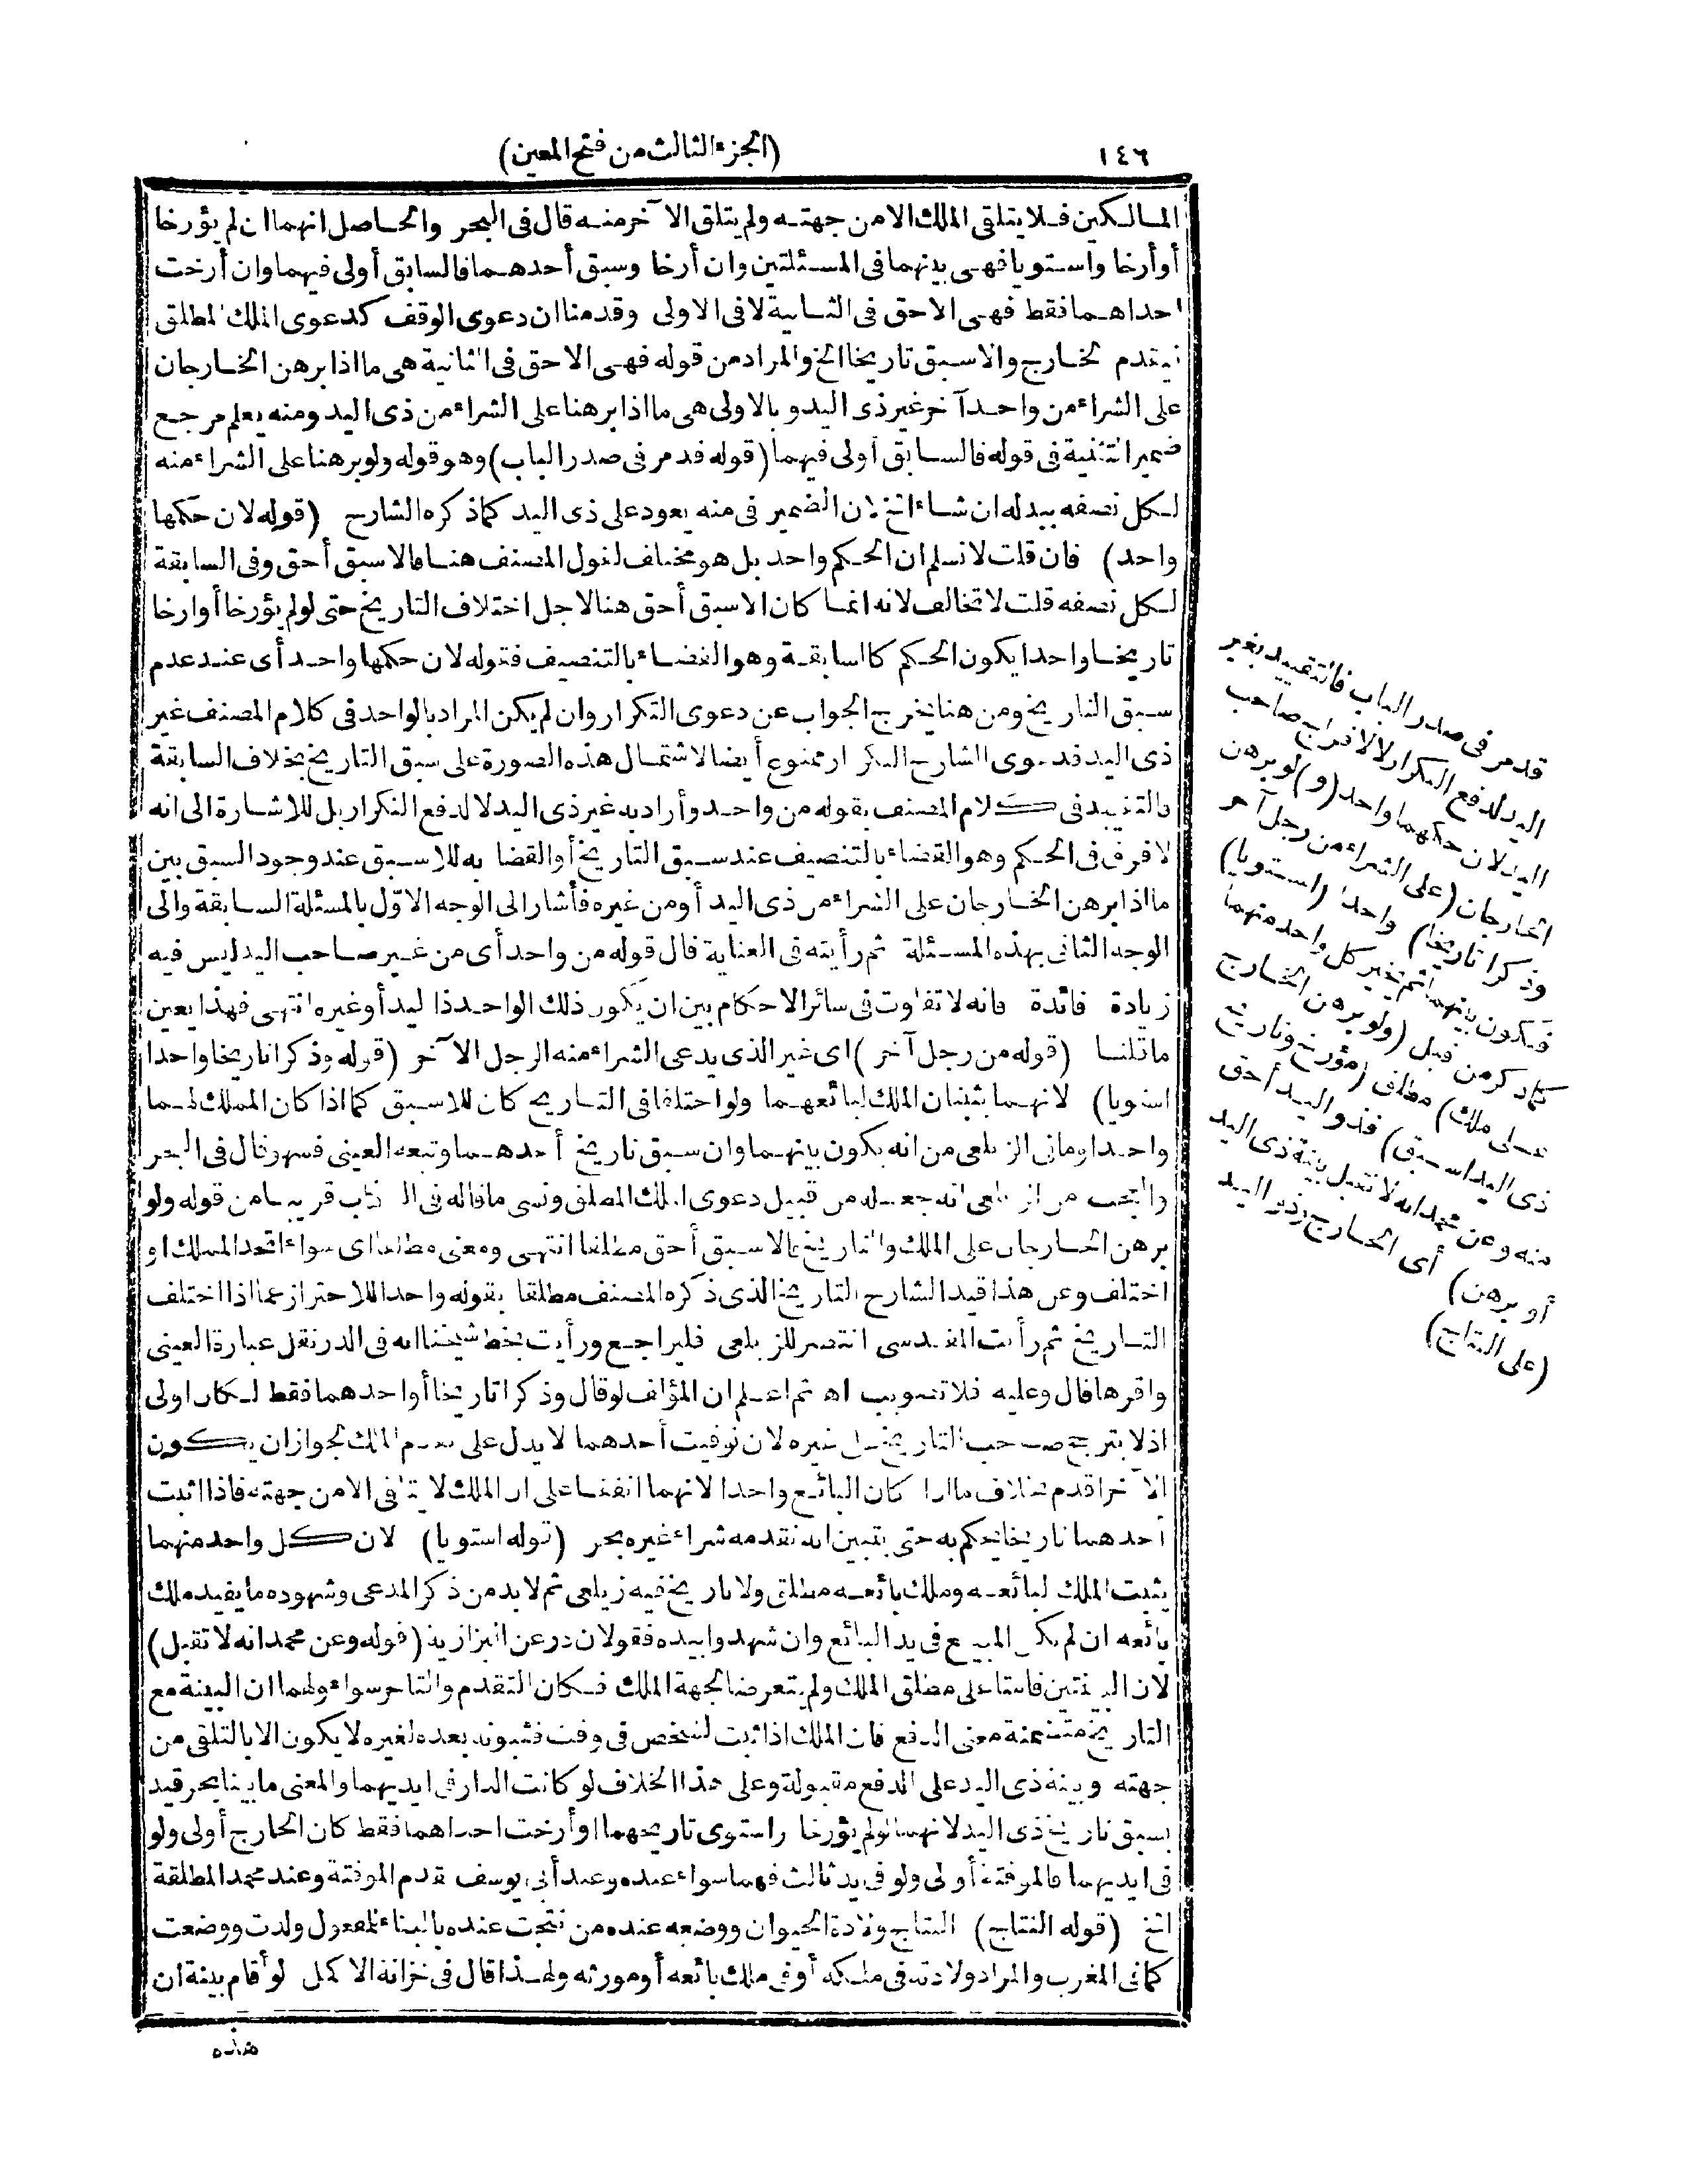 ١٤٦
(الجزء الثالث من فتح المعين)
المالكين فلا يتلقى الملك الا من جهته ولم يتلق الآخر منه قال فى البحر والحاصل انهما ان لم يؤرخا
أو أرخا واستويا فهى بينهما فى المسئلتين وان أرخا وسبق أحدهما فالسابق أولى فيهما وان أرخت
احداهما فقط فهى الاحق فى الثانية لا فى الاولى وقدمنا ان دعوى الوقف كدعوى الملك المطلق
فيقدم الخارج والاسبق تاريخا الخ والمراد من قوله فهى الاحق فى الثانية هى ما اذا برهن الخارجان
على الشراء من واحد آخر غير ذى اليد وبالاولى هى ما اذا برهنا على الشراء من ذى اليد ومنه يعلم مرجع
ضمير التثنية فى قوله فالسابق أولى فيهما (قوله قد مر فى صدر الباب) وهو قوله ولو برهنا على الشراء منه
لكل نصفه ببدله ان شاء الخ لان الضمير فى منه يعود على ذى اليد كما ذكره الشارح (قوله لان حكمها
واحد) فان قلت لا نسلم ان الحكم واحد بل هو مختلف لقول المصنف هنا فالاسبق أحق وفى السابقة
لكل نصفه قلت لا تخالف لانه انما كان الاسبق أحق هنا لاجل اختلاف التاريخ حتى لو لم يؤرخا أو ارخا
تاريخا واحدا يكون الحكم كالسابقة وهو القضاء بالتنصيف فقوله لان حكمها واحد أى عند عدم
سبق التاريخ ومن هنا يخرج الجواب عن دعوى التكرار وان لم يكن المراد بالواحد فى كلام المصنف غير
ذى اليد فدعوى الشارح التكرار ممنوع أيضا لاشتمال هذه الصورة على سبق التاريخ بخلاف السابقة
فالتقييد فى كلام المصنف بقوله من واحد وأراد به غير ذى اليد لا لدفع التكرار بل للاشارة الى انه
لا فرق فى الحكم وهو القضاء بالتنصيف عند سبق التاريخ أو القضا به للاسبق عند وجود السبق بين
ما اذا برهن الخارجان على الشراء من ذى اليد أو من غيره فأشار الى الوجه الاوّل بالمسئلة السابقة والى
الوجه الثانى بهذه المسئلة ثم رأيته فى العناية قال قوله من واحد أى من غير صاحب اليد ليس فيه
زيادة فائدة فانه لا تفاوت فى سائر الاحكام بين ان يكون ذلك الواحد ذا ليد أو غيره انتهى فهذا يعين
ما قلنا (قوله من رجل آخر) اى غير الذى يدعى الشراء منه الرجل الآخر (قوله وذكرا تاريخا واحدا
استويا) لانهما يثبتان الملك لبائعهما ولو اختلفا فى التاريخ كان للاسبق كما اذا كان المملك لهما
واحدا وما فى الزيلعى من انه يكون بينهما وان سبق تاريخ أحدهما وتبعه العينى فسهو قال فى البحر
والعجب من الزيلعى انه جعله من قبيل دعوى الملك المطلق ونسى ما قاله فى الكتاب قريبا من قوله ولو
برهن الخارجان على الملك والتاريخ فالاسبق أحق مطلقا انتهى ومعنى مطلقا اى سواء اتحد المملك او
اختلف وعن هذا قيد الشارح التاريخ الذى ذكره المصنف مطلقا بقوله واحدا للاحتراز عما اذا اختلف
التاريخ ثم رأيت المقدسى انتصر للزيلعى فليراجع ورأيت بخط شيخنا انه فى الدر نقل عبارة العينى
واقرها قال وعليه فلا تصويب اه ثم اعلم ان المؤلف لو قال وذكرا تاريخا أو احدهما فقط لكان اولى
اذ لا يترجح صاحب التاريخ على غيره لان توقيت أحدهما لا يدل على تقدم الملك لجواز ان يكون
الآخر اقدم بخلاف ما اذا كان البائع واحدا لانهما اتفقا على ان الملك لا يتلقى الا من جهته فاذا اثبت
أحدهما تاريخا يحكم به حتى يتبين انه تقدمه شراء غيره بحر (قوله استويا) لان كل واحد منهما
يثبت الملك لبائعه وملك بائعه مطلق ولا تاريخ فيه زيلعى ثم لا بد من ذكر المدعى وشهوده ما يفيد ملك
بائعه ان لم يكن المبيع فى يد البائع وان شهدوا بيده فقولان در عن البزازية (قوله وعن محمد انه لا تقبل)
لان البينتين قامتا على مطلق الملك ولم يتعرضا لجهة الملك فكان التقدم والتاخر سواء ولهما ان البينة مع
التاريخ متضمنة معنى الدفع فان الملك اذا ثبت لشخص فى وقت فثبوته بعده لغيره لا يكون الا بالتلقى من
جهته وبينة ذى اليد على الدفع مقبولة وعلى هذا الخلاف لو كانت الدار فى ايديهما والمعنى ما بينا بحر قيد
بسبق تاريخ ذى اليد لانهما لو لم يؤرخا واستوى تاريخهما أو أرخت احداهما فقط كان الخارج أولى ولو
فى ايديهما فالموقتة أولى ولو فى يد ثالث فهما سواء عنده وعند أبى يوسف تقدم الموقتة وعند محمد المطلقة
الخ (قوله النتاج) النتاج ولادة الحيوان ووضعه عنده من نتجت عنده بالبناء للمفعول ولدت ووضعت
كما فى المغرب والمراد ولادته فى ملكه أو فى ملك بائعه أو مورثه ولهذا قال فى خزانة الاكمل لو أقام بينة ان
هذه
قد مر فى صدر الباب فالتقييد بغير
اليد لدفع التكرار لا لاخراج صاحب
اليد لان حكمهما واحد (و) لو برهن
الخارجان (على الشراء من رجل آخر
وذكرا تاريخا) واحدا (استويا)
فيكون بينهما ثم يخير كل واحد منهما
كما ذكر من قبل (ولو برهن الخارج
على ملك) مطلق (مؤرخ وتاريخ
ذى اليد اسبق) فذو اليد أحق
منه وعن محمد انه لا تقبل بينة ذى اليد
أو برهن) أى الخارج وذو اليد
(على النتاج)